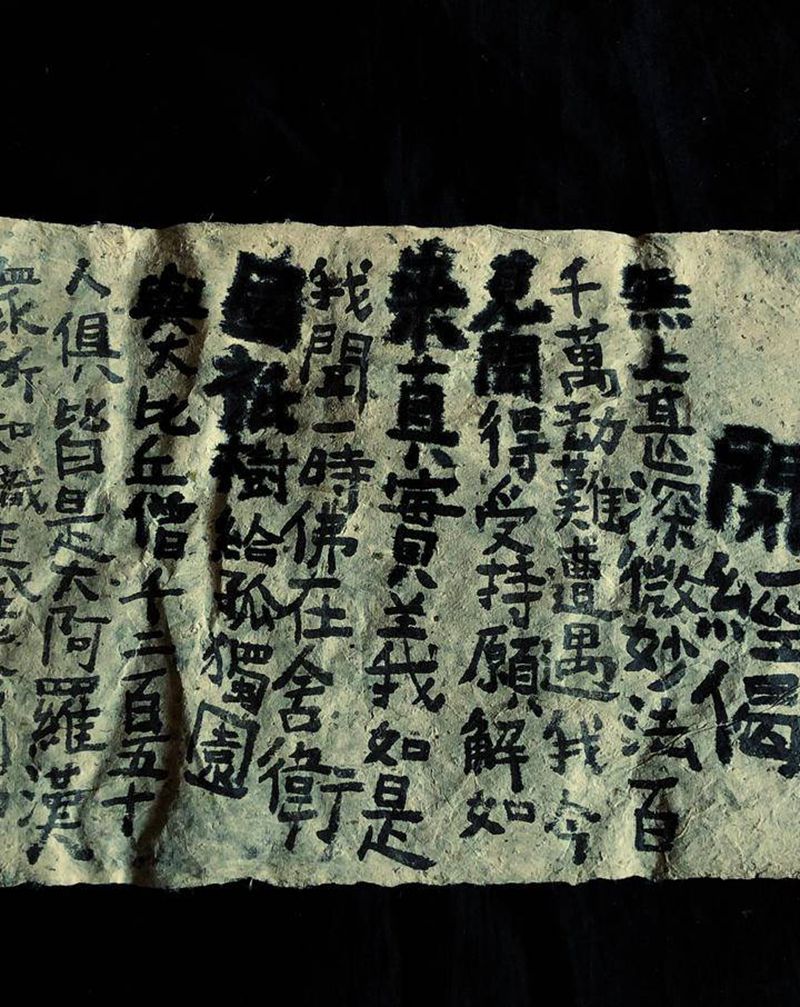 開經偈
無上甚深微妙法百
千萬劫難遭遇我今
見聞得受持願解如
來真實義如是
我聞一時佛在舍衛
國祇樹給孤獨園
與大比丘僧千二百五十
人俱皆是大阿羅漢
衆所知識